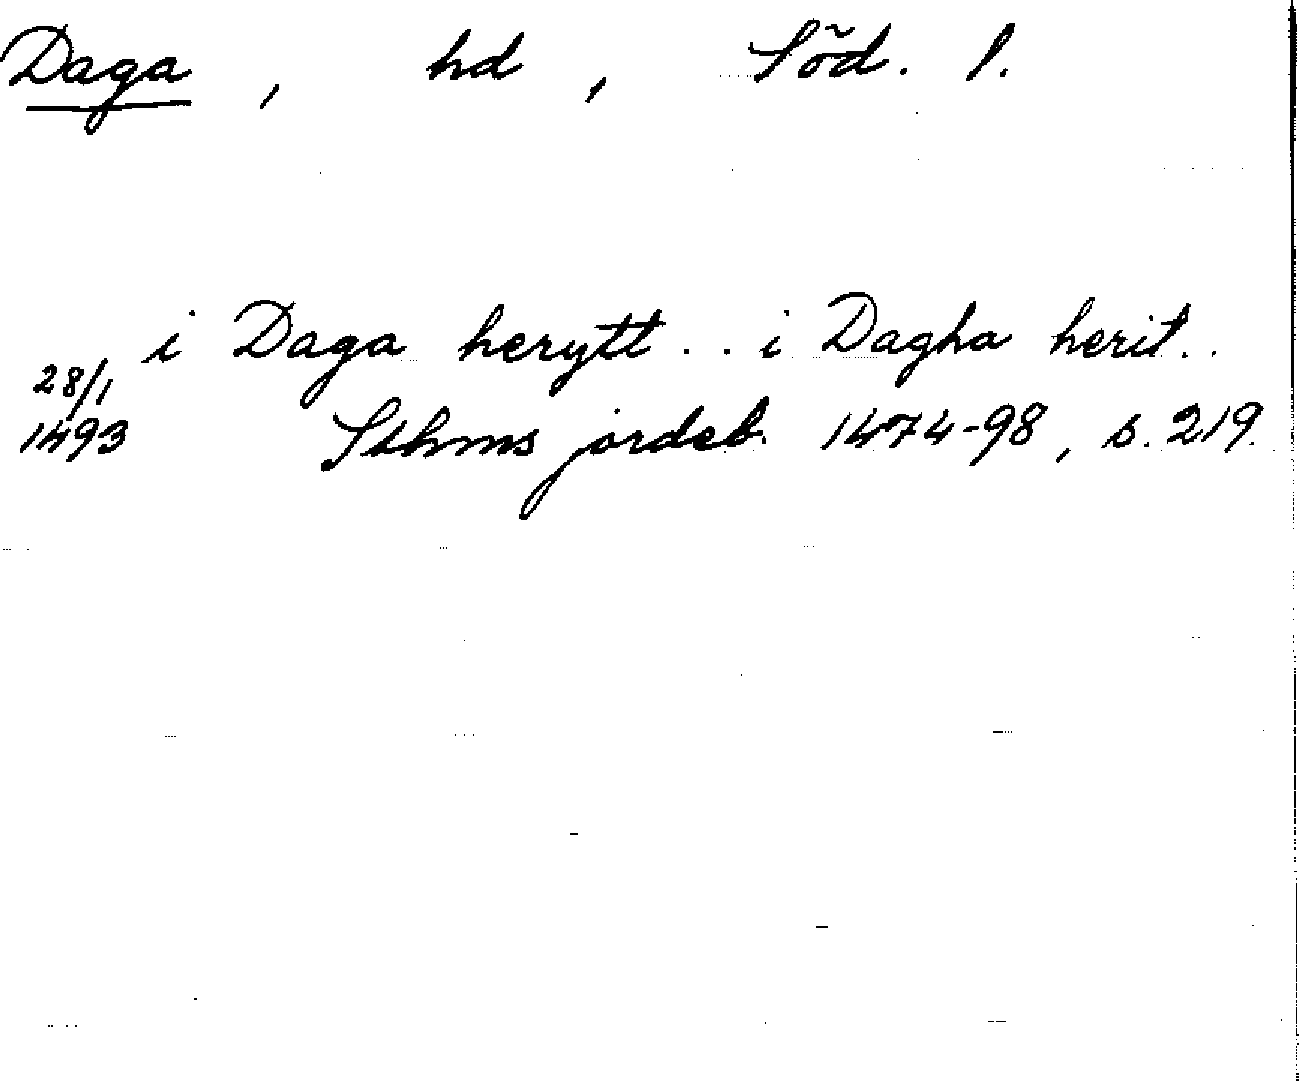 Daga, hd, Söd. l.
i Daga herytt.. i Dagha herit..
28/1
1493 Sthms jordeb. 1474-98, s. 219.